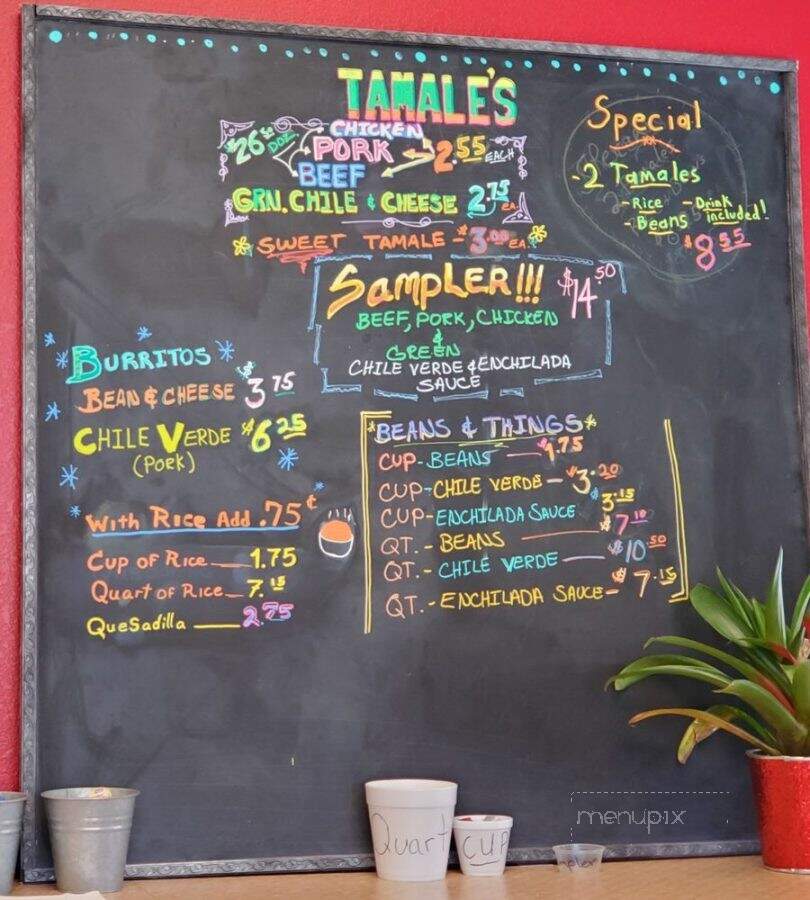 TAMALE'S
CHICKEN
$26.50 DOZ. PORK 2.55 EACH
BEEF
GRN. CHILE & CHEESE 2.75 EA.
SWEET TAMALE - $3.00 EA.
Special
-2 Tamales
- Rice - Drink
- Beans included!
$8.55
SAMPLER!!! $14.50
BEEF, PORK, CHICKEN
&
GREEN
CHILE VERDE & ENCHILADA
SAUCE
BURRITOS
BEAN & CHEESE $3.75
CHILE VERDE $6.25
(PORK)
WITH RICE ADD .75¢
CUP OF RICE 1.75
QUART OF RICE 7.15
QUESADILLA 2.75
*BEANS & THINGS*
CUP-BEANS $1.75
CUP-CHILE VERDE - $3.20
CUP-ENCHILADA SAUCE $3.15
QT.- BEANS $7.10
QT.- CHILE VERDE $10.50
QT.- ENCHILADA SAUCE- $7.15
Quart
cup
menupix